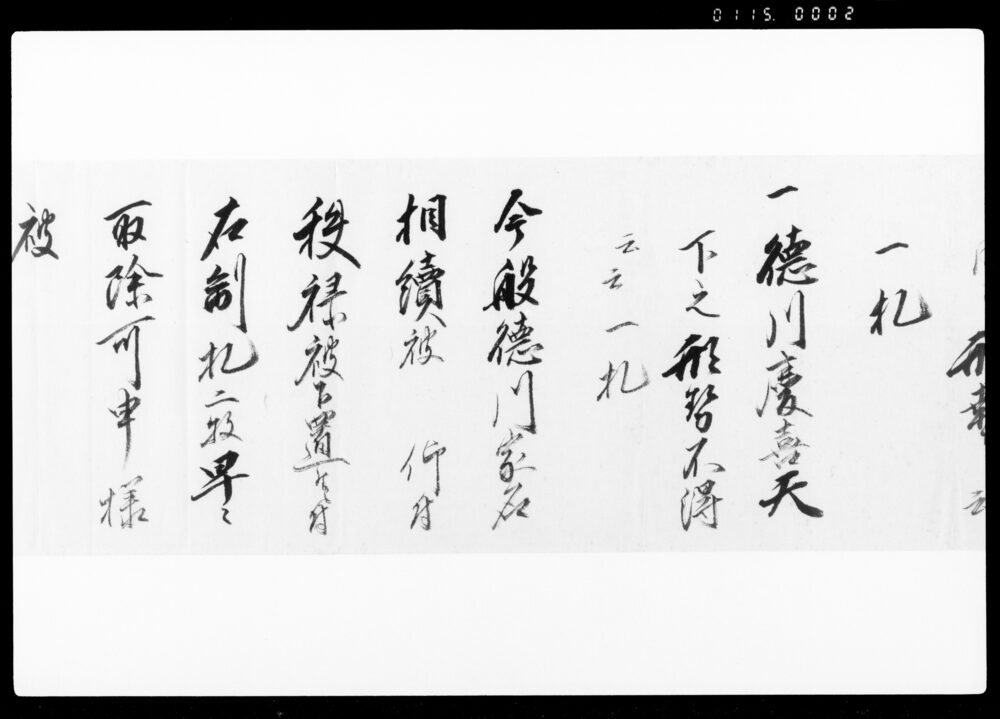 0115. 0002
一札
一徳川慶喜天
下之形勢不得
云云一札
今般徳川家名
相續被　仰付
秩禄被下置候付
右制札二枚早々
取除可申様
被